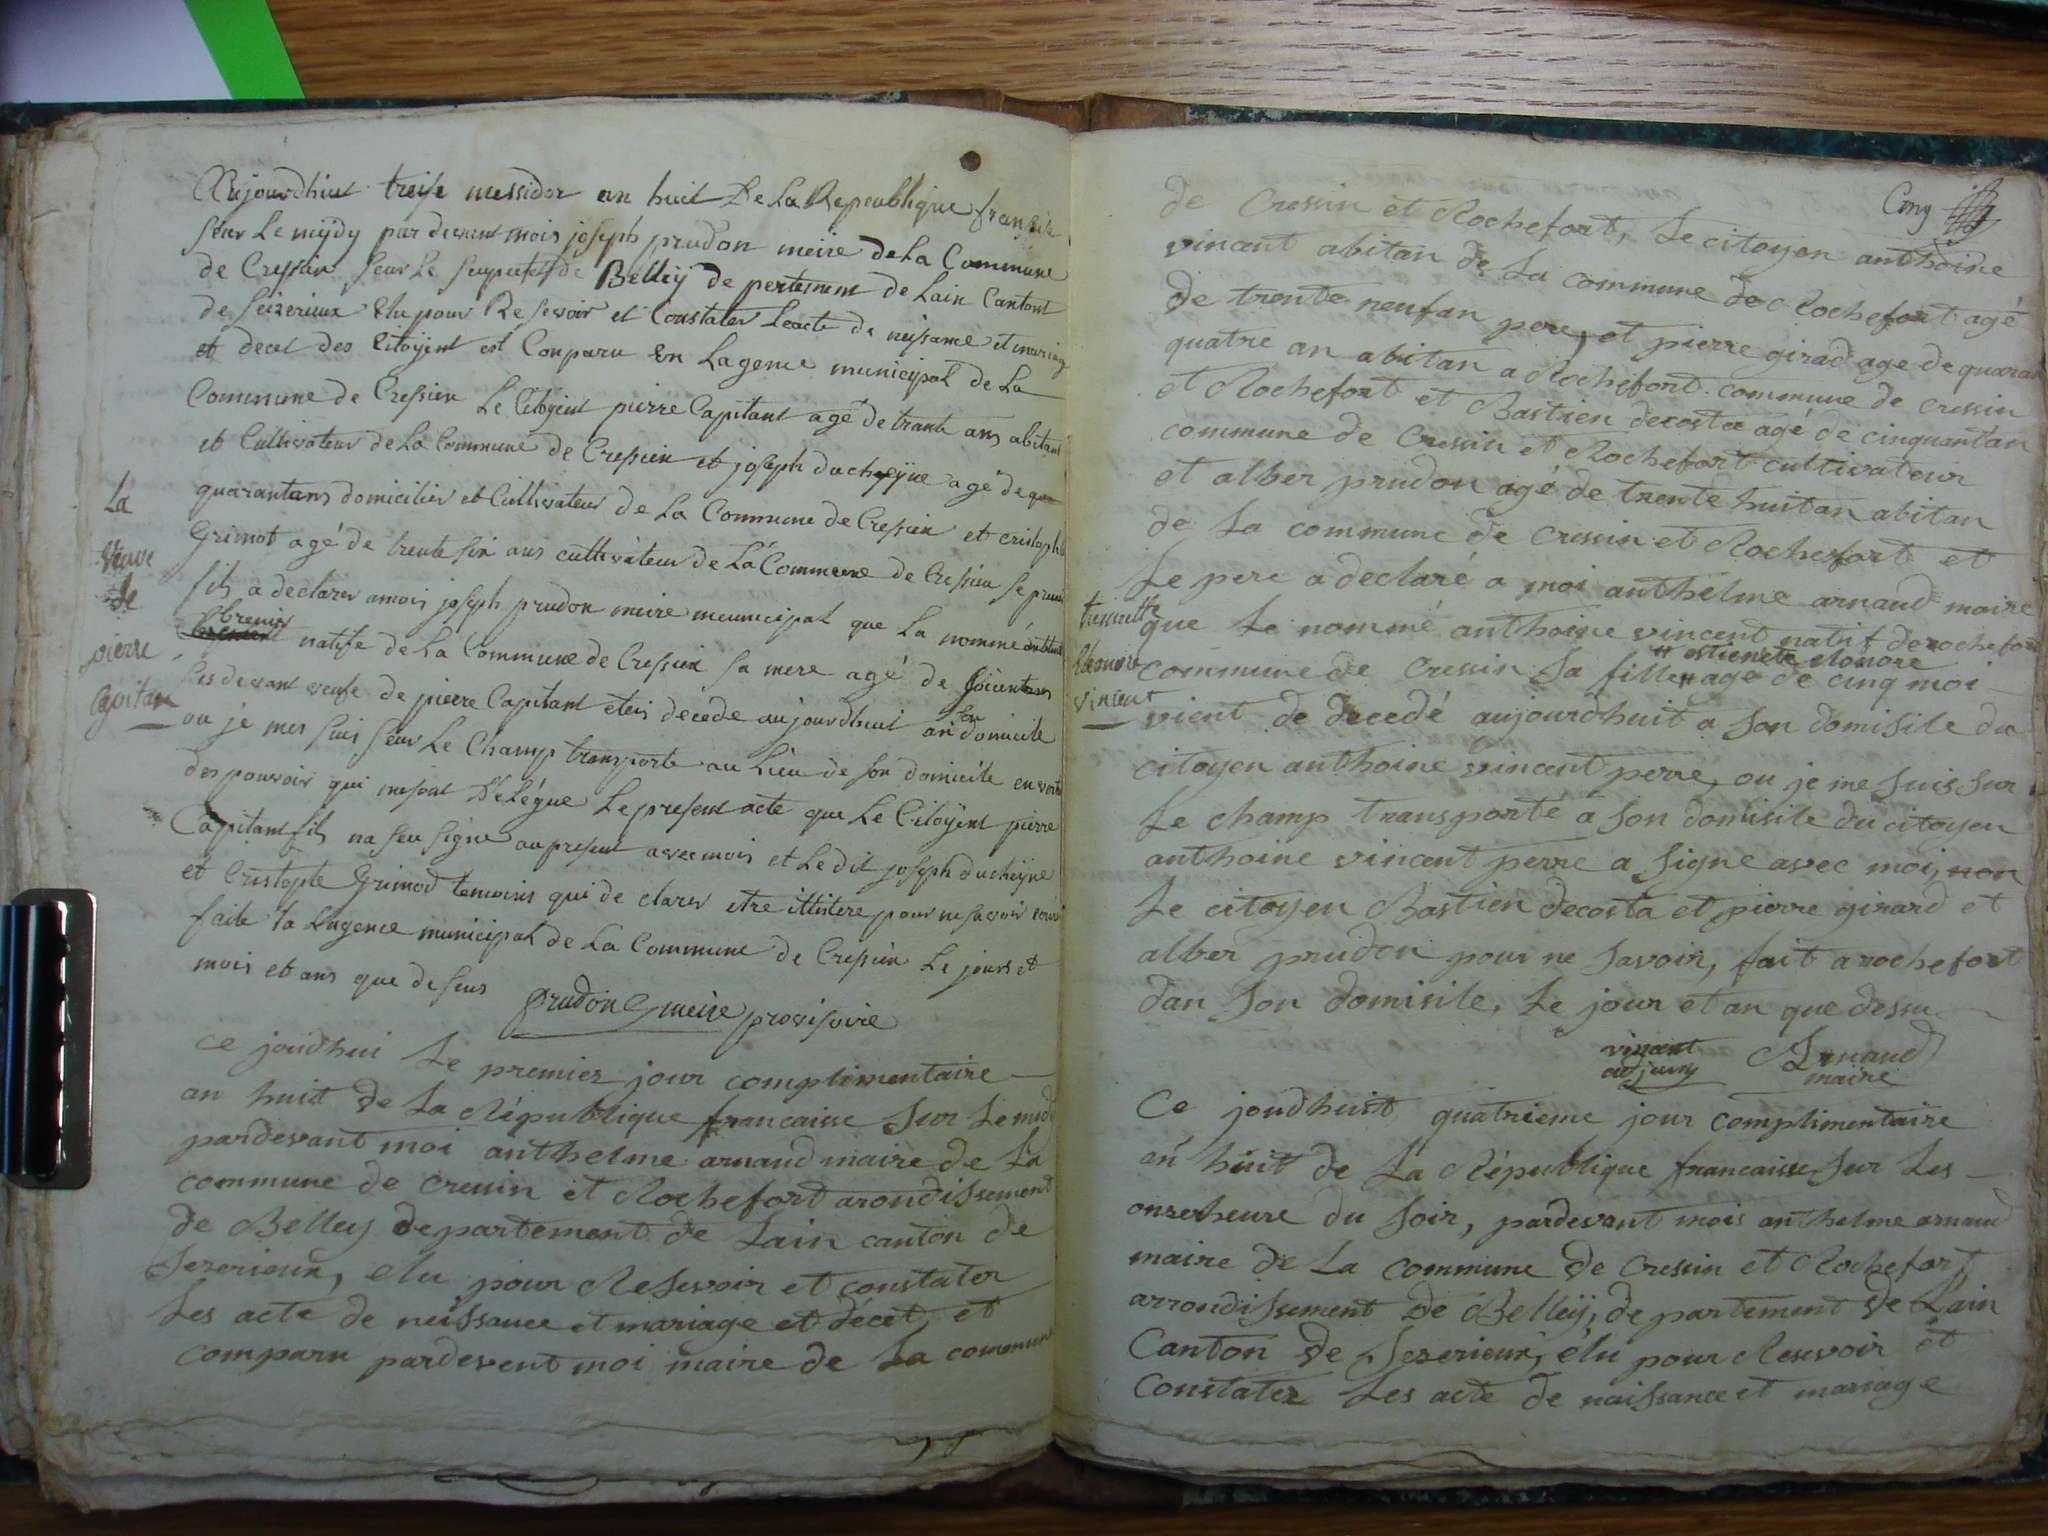 Aujourdhiut treise messidor an huit De La Repeublique franseise
seur Le miÿdy par devent mois joseph prudon meire de La Commune
de Cressin seur Le de Belleÿ de pertement de Lain Cantont
de Seizerieux Elu pour Re sevoir et Constater Leacte de neissame et mariag
et deces des Citoyent est Conparu En Lagence municipal de La
Commune de Cressien Le Citoyent pierre Capitant agé de trante ans abitant
et Cultivateur de La Commune de Cressien et joseph ducheÿne agé de
quarantans domicilier et Cultivateur de La Commune de Cressien et cristophe
Grimot agé de trente six ans cultivateur de La Commune de Cressien Se
fils a declarer amois joseph prudon meire meunicipal que La nommé
La
Veuve
de
pierre
Capitan
natife de La Commune de Cressien sa mere agé de
Sis devant veufe de pierre Capitant eteis décede aujourdhuit an son domicile
ou je mes suis seur Le Champ transporte au Lieu de son domicile en vertu
des pouvoir qui mesont Delégue Le present acte que Le Citoÿent pierre
Capitant fils na seu signe au present avec mois et Le dit joseph ducheÿne
et Cristophe Grimod temoins qui de clarer etre illitere pour ne savoir
faite a Lagence municipal de La Commune de Cressien Le jours et
mois et ans que de seus
prudon meire provisoire
ce joudhui Le premier jour complimentaire
an huit de La République francaisse Sur Le midi
pardevant moi anthelme arnaud maire de La
commune de cressin et Rochefort arondissement
de Belley departement de Lain canton de
Sezerieux, elu pour Resevoir et constater
Les acte de neissance et mariage et décet, et
comparu pardevent moi maire de La commune
Cinq
de Cressin et Rochefort, Le citoyen anthoine
vincent abitan de La commune de Rochefort agé
de trente neufan pere, et pierre girad age de quaran
quatre an abitan a Rochefort commune de cressin
et Rochefort et Bastien decosta agé de cinquantan
commune de Cressin et Rochefort cultivateur
et alber prudon agé de trente huitan abitan
de La commune de cressin et Rochefort et
Le pere a declaré a moi anthelme arnaud maire
que Le nommé anthoine vincent natif de rochefort
Eléonore
vincent
commune de Cressin Sa fille age de cinq moi
vient de decedé aujourdhuit a Son domisile du
citoyen anthoine vincent perre, ou je me Suis Sur
Le champ transporté a Son domisile du citoyen
anthoine vincent perre a Signe avec moi, non
Le citoyen Bastien decosta et pierre girard et
alber prudon pour ne Savoir, fait a rochefort
dan Son domisile, Le jour et an que dessu
vincent Arnaud
adjoing maire
Ce joudhuit quatrieme jour complimentaire
an huit de La République francaisse Sur Les
onze heure du Soir, pardevant mois anthelme arnaud
maire de La commune de Cressin et Rochefort,
arrondissement de Belleÿ, departement de Lain
Canton de Sezerieux, élu pour Resevoir et
Constater Les acte de naissance et mariage